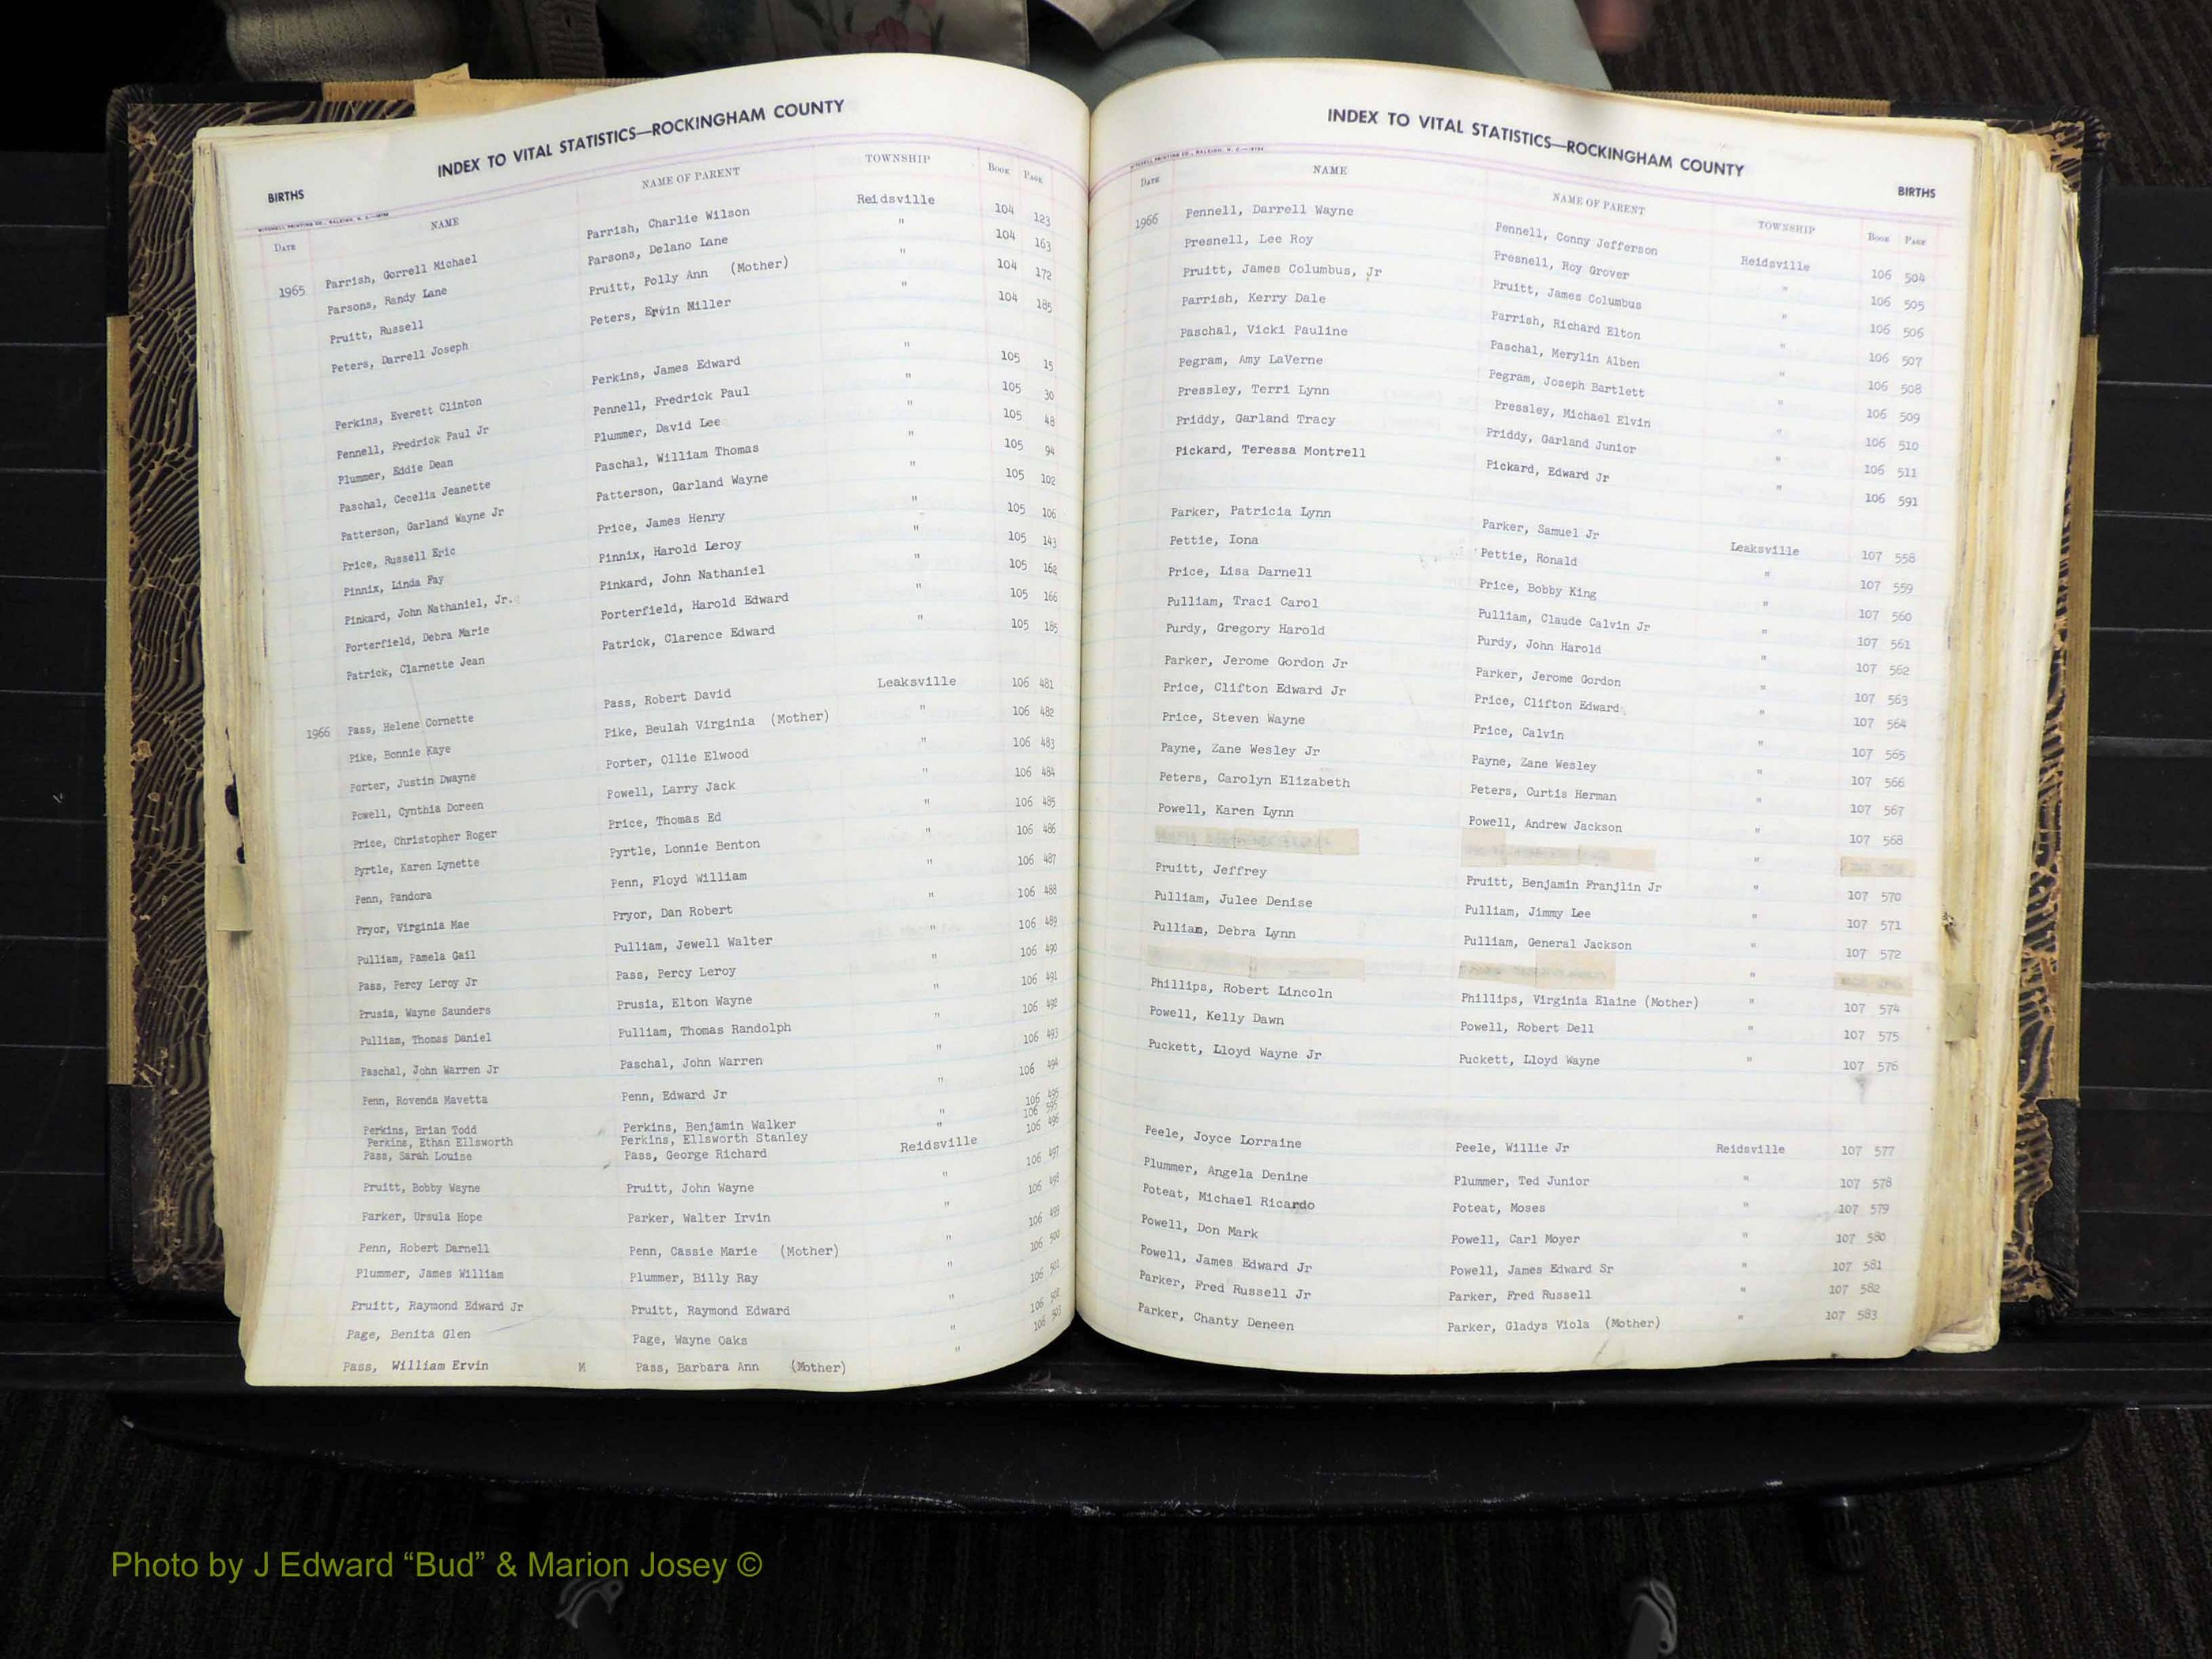 INDEX TO VITAL STATISTICS—ROCKINGHAM COUNTY
BIRTHS
DATE NAME NAME OF PARENT TOWNSHIP BOOK PAGE
1965 Parrish, Gorrell Michael Parrish, Charlie Wilson Reidsville 104 123
Parsons, Randy Lane Parsons, Delano Lane " 104 163
Pruitt, Russell Pruitt, Polly Ann (Mother) " 104 172
Peters, Darrell Joseph Peters, Ervin Miller " 104 185
Perkins, Everett Clinton Perkins, James Edward " 105 15
Pennell, Fredrick Paul Jr Pennell, Fredrick Paul " 105 30
Plummer, Eddie Dean Plummer, David Lee " 105 48
Paschal, Cecelia Jeanette Paschal, William Thomas " 105 94
Patterson, Garland Wayne Jr Patterson, Garland Wayne " 105 102
Price, Russell Eric Price, James Henry " 105 106
Pinnix, Linda Fay Pinnix, Harold Leroy " 105 143
Pinkard, John Nathaniel, Jr. Pinkard, John Nathaniel " 105 162
Porterfield, Debra Marie Porterfield, Harold Edward " 105 166
Patrick, Clarnette Jean Patrick, Clarence Edward " 105 185
1966 Pass, Helene Cornette Pass, Robert David Leaksville 106 481
Pike, Bonnie Kaye Pike, Beulah Virginia (Mother) " 106 482
Porter, Justin Dwayne Porter, Ollie Elwood " 106 483
Powell, Cynthia Doreen Powell, Larry Jack " 106 484
Price, Christopher Roger Price, Thomas Ed " 106 485
Pyrtle, Karen Lynette Pyrtle, Lonnie Benton " 106 486
Penn, Pandora Penn, Floyd William " 106 487
Pryor, Virginia Mae Pryor, Dan Robert " 106 488
Pulliam, Pamela Gail Pulliam, Jewell Walter " 106 489
Pass, Percy Leroy Jr Pass, Percy Leroy " 106 490
Prusia, Wayne Saunders Prusia, Elton Wayne " 106 491
Pulliam, Thomas Daniel Pulliam, Thomas Randolph " 106 492
Paschal, John Warren Jr Paschal, John Warren " 106 493
Penn, Rovenda Mavetta Penn, Edward Jr " 106 494
Perkins, Brian Todd Perkins, Benjamin Walker " 106 495
Perkins, Ethan Ellsworth Perkins, Ellsworth Stanley " 106 595
Pass, Sarah Louise Pass, George Richard Reidsville 106 496
Pruitt, Bobby Wayne Pruitt, John Wayne " 106 497
Parker, Ursula Hope Parker, Walter Irvin " 106 498
Penn, Robert Darnell Penn, Cassie Marie (Mother) " 106 499
Plummer, James William Plummer, Billy Ray " 106 500
Pruitt, Raymond Edward Jr Pruitt, Raymond Edward " 106 501
Page, Benita Glen Page, Wayne Oaks " 106 502
Pass, William Ervin M Pass, Barbara Ann (Mother) " 106 503
MITCHELL PRINTING CO., RALEIGH, N. C.
INDEX TO VITAL STATISTICS—ROCKINGHAM COUNTY
BIRTHS
MITCHELL PRINTING CO., RALEIGH, N. C.
DATE NAME NAME OF PARENT TOWNSHIP BOOK PAGE
1966 Pennell, Darrell Wayne Pennell, Conny Jefferson Reidsville 106 504
Presnell, Lee Roy Presnell, Roy Grover " 106 505
Pruitt, James Columbus, Jr Pruitt, James Columbus " 106 506
Parrish, Kerry Dale Parrish, Richard Elton " 106 507
Paschal, Vicki Pauline Paschal, Merylin Alben " 106 508
Pegram, Amy LaVerne Pegram, Joseph Bartlett " 106 509
Pressley, Terri Lynn Pressley, Michael Elvin " 106 510
Priddy, Garland Tracy Priddy, Garland Junior " 106 511
Pickard, Teressa Montrell Pickard, Edward Jr " 106 591
Parker, Patricia Lynn Parker, Samuel Jr Leaksville 107 558
Pettie, Iona Pettie, Ronald " 107 559
Price, Lisa Darnell Price, Bobby King " 107 560
Pulliam, Traci Carol Pulliam, Claude Calvin Jr " 107 561
Purdy, Gregory Harold Purdy, John Harold " 107 562
Parker, Jerome Gordon Jr Parker, Jerome Gordon " 107 563
Price, Clifton Edward Jr Price, Clifton Edward " 107 564
Price, Steven Wayne Price, Calvin " 107 565
Payne, Zane Wesley Jr Payne, Zane Wesley " 107 566
Peters, Carolyn Elizabeth Peters, Curtis Herman " 107 567
Powell, Karen Lynn Powell, Andrew Jackson " 107 568
"
Pruitt, Jeffrey Pruitt, Benjamin Franjlin Jr " 107 570
Pulliam, Julee Denise Pulliam, Jimmy Lee 107 571
Pulliam, Debra Lynn Pulliam, General Jackson " 107 572
"
Phillips, Robert Lincoln Phillips, Virginia Elaine (Mother) " 107 574
Powell, Kelly Dawn Powell, Robert Dell " 107 575
Puckett, Lloyd Wayne Jr Puckett, Lloyd Wayne " 107 576
Peele, Joyce Lorraine Peele, Willie Jr Reidsville 107 577
Plummer, Angela Denine Plummer, Ted Junior " 107 578
Poteat, Michael Ricardo Poteat, Moses " 107 579
Powell, Don Mark Powell, Carl Moyer " 107 580
Powell, James Edward Jr Powell, James Edward Sr " 107 581
Parker, Fred Russell Jr Parker, Fred Russell " 107 582
Parker, Chanty Deneen Parker, Gladys Viola (Mother) " 107 583
Photo by J Edward “Bud” & Marion Josey ©